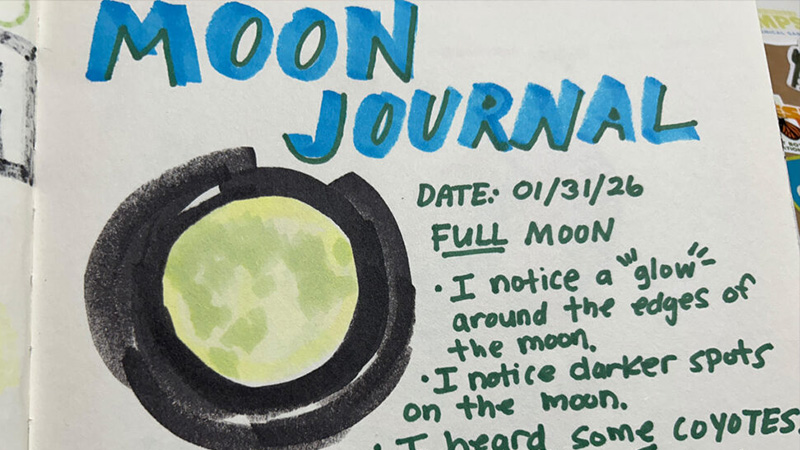 MOON
JOURNAL
DATE: 01/31/26
FULL MOON
• I notice a "glow"
around the edges of
the moon.
• I notice darker spots
on the moon.
• I heard some COYOTES.
MPS